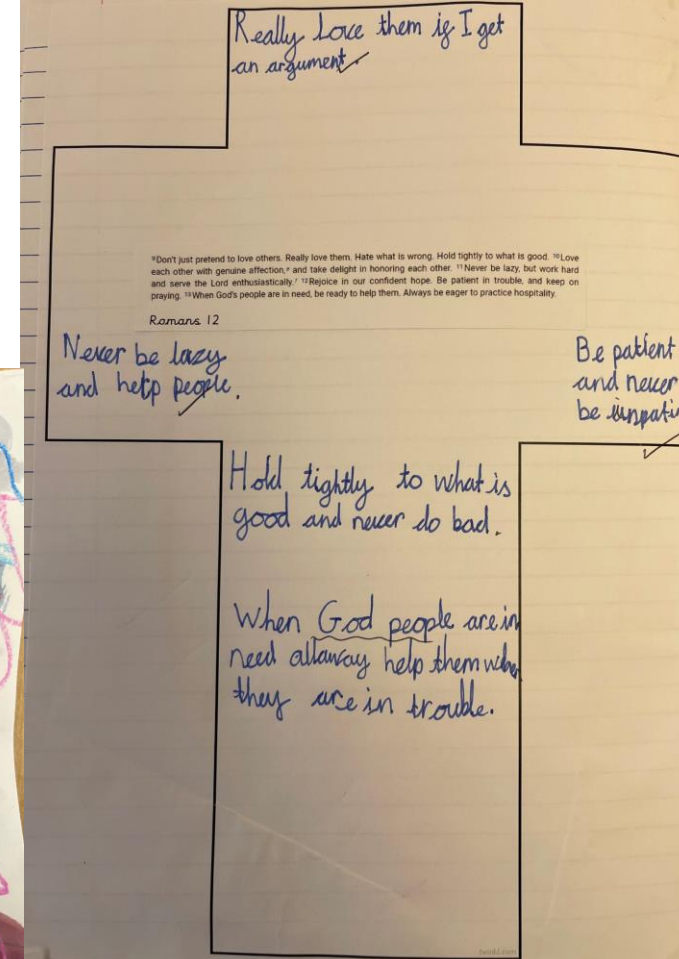 Really Love them if I get
an argument.
⁹Don't just pretend to love others. Really love them. Hate what is wrong. Hold tightly to what is good. ¹⁰Love
each other with genuine affection,ᵉ and take delight in honoring each other. ¹¹Never be lazy, but work hard
and serve the Lord enthusiastically.ᶠ ¹²Rejoice in our confident hope. Be patient in trouble, and keep on
praying. ¹³When God's people are in need, be ready to help them. Always be eager to practice hospitality.
Romans 12
Never be lazy
and help people.
Be patient
and never
be
Hold tightly to what is
good and never do bad.
When God people are in
need allaway help them when
they are in trouble.